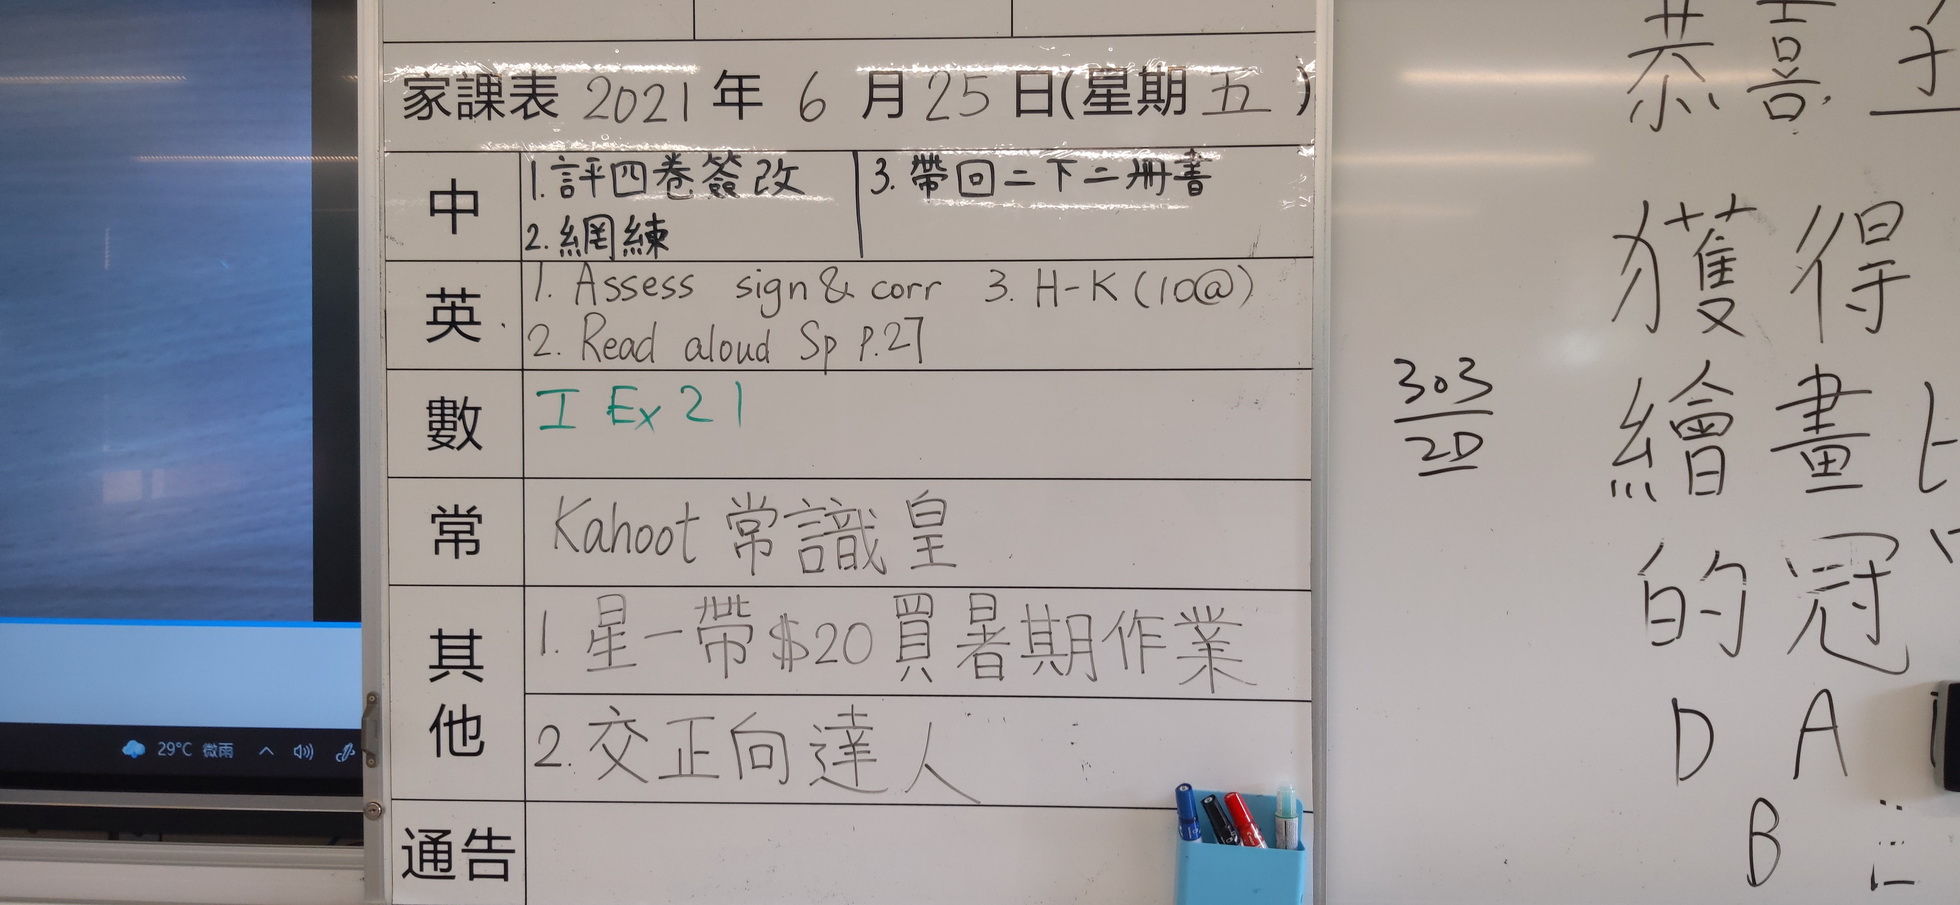 家課表 2021 年 6 月 25 日(星期 五 )
中
1. 評四卷簽改
2. 網練
3. 帶回二下二冊書
英
1. Assess sign & corr 3. H-K (10@)
2. Read aloud Sp p.27
數
I Ex 21
常
Kahoot 常識皇
其他
1. 星一帶$20買暑期作業
2. 交正向達人
通告
29°C 微雨
303
2D
恭喜
獲得
繪畫
的冠
D A
B